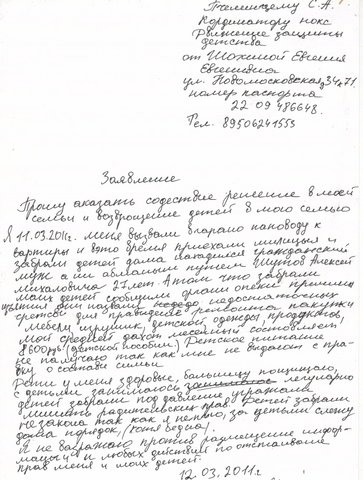 Пчелинцеву С.А.
Кординатору покс
Движение защиты
детства
от Шохиной Евгения
Евгенидна
ул. Новомосковская, 34а, 71.
номер паспорта
22 09 486648.
Тел. 89506241553
Заявление
Прошу аказать содествие решение в моей
семьи и возврощение детей в мою семью
Я 11.03.2011г. меня вызвали в нарано по поводу
вартиры и вэто время приехали милицыя и
забрали детей дома находился гражданский
муж а ии абманным путём. Шутов Алексей
михалович 27 лет. А том что забрали
маих детей сообщили органи опеки причины
изъятия они назвали недостаточных
сретсвы для праведения ремонта, покупку
мебели игрушик, детской одежды, продуктов,
мой средней дахот месечный состовляет
8600руб (детской пособия). Детское питание
не палучаю так как мне не выдают спра-
вку о составе семьи
Дети у меня здоровые, бальницу пощищаю,
с детьми занималось регулярно
детей забрали под давление угражали
лишить радительских прав. Детей забрали
незакона так как я не пью, за детьми слежу
дома порядок, (хотя бедна).
Я не вазражаю против размещение инфор-
мацыи и любых действий по отстаивание
прав меня и моих детей.
12.03.2011г.